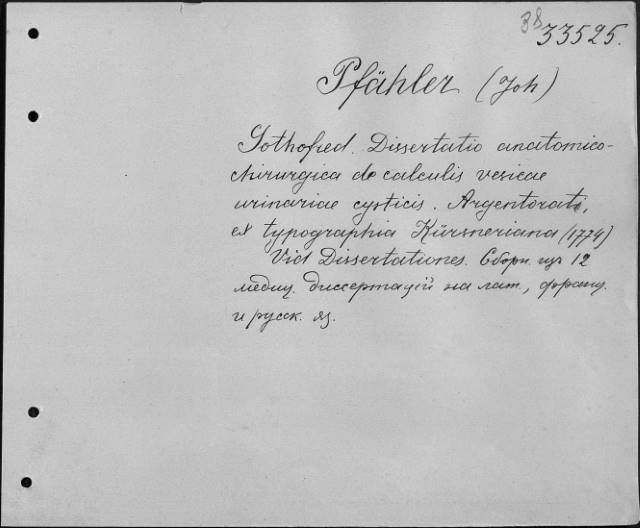 38
33525.
Pfähler (Joh)
Gothofred. Dissertatio anatomico-
chirurgica de calculis vesicae
urinariae cysticis. Argentorati,
ex typographia Kürsneriana (1774)
Vid Dissertationes. Сборн. изъ 12
медиц. диссертацій на лат., франц.
и русск. яз.